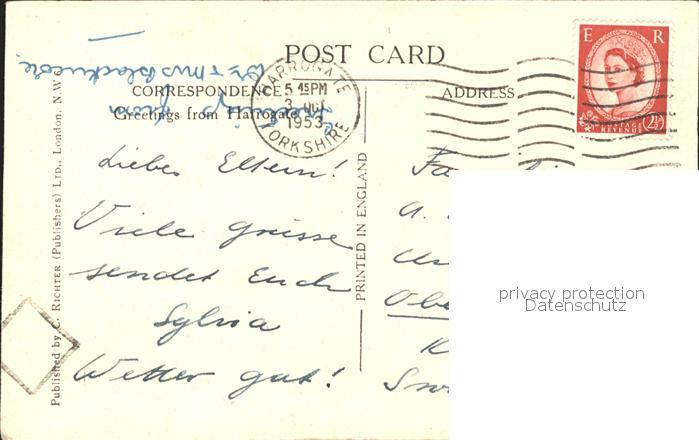 POST CARD
CORRESPONDENCE
ADDRESS
Greetings from Harrogate
HARROGATE
5 45PM
3 OCT
1953
YORKSHIRE
E R
POSTAGE
REVENUE
2½
Mr & Mrs
from
Liebe Eltern!
Viele Grüsse
sendet Euch
Sylvia
Wetter gut!
PRINTED IN ENGLAND
Published by C. RICHTER (Publishers) LTD., London, N.W.6
privacy protection
Datenschutz